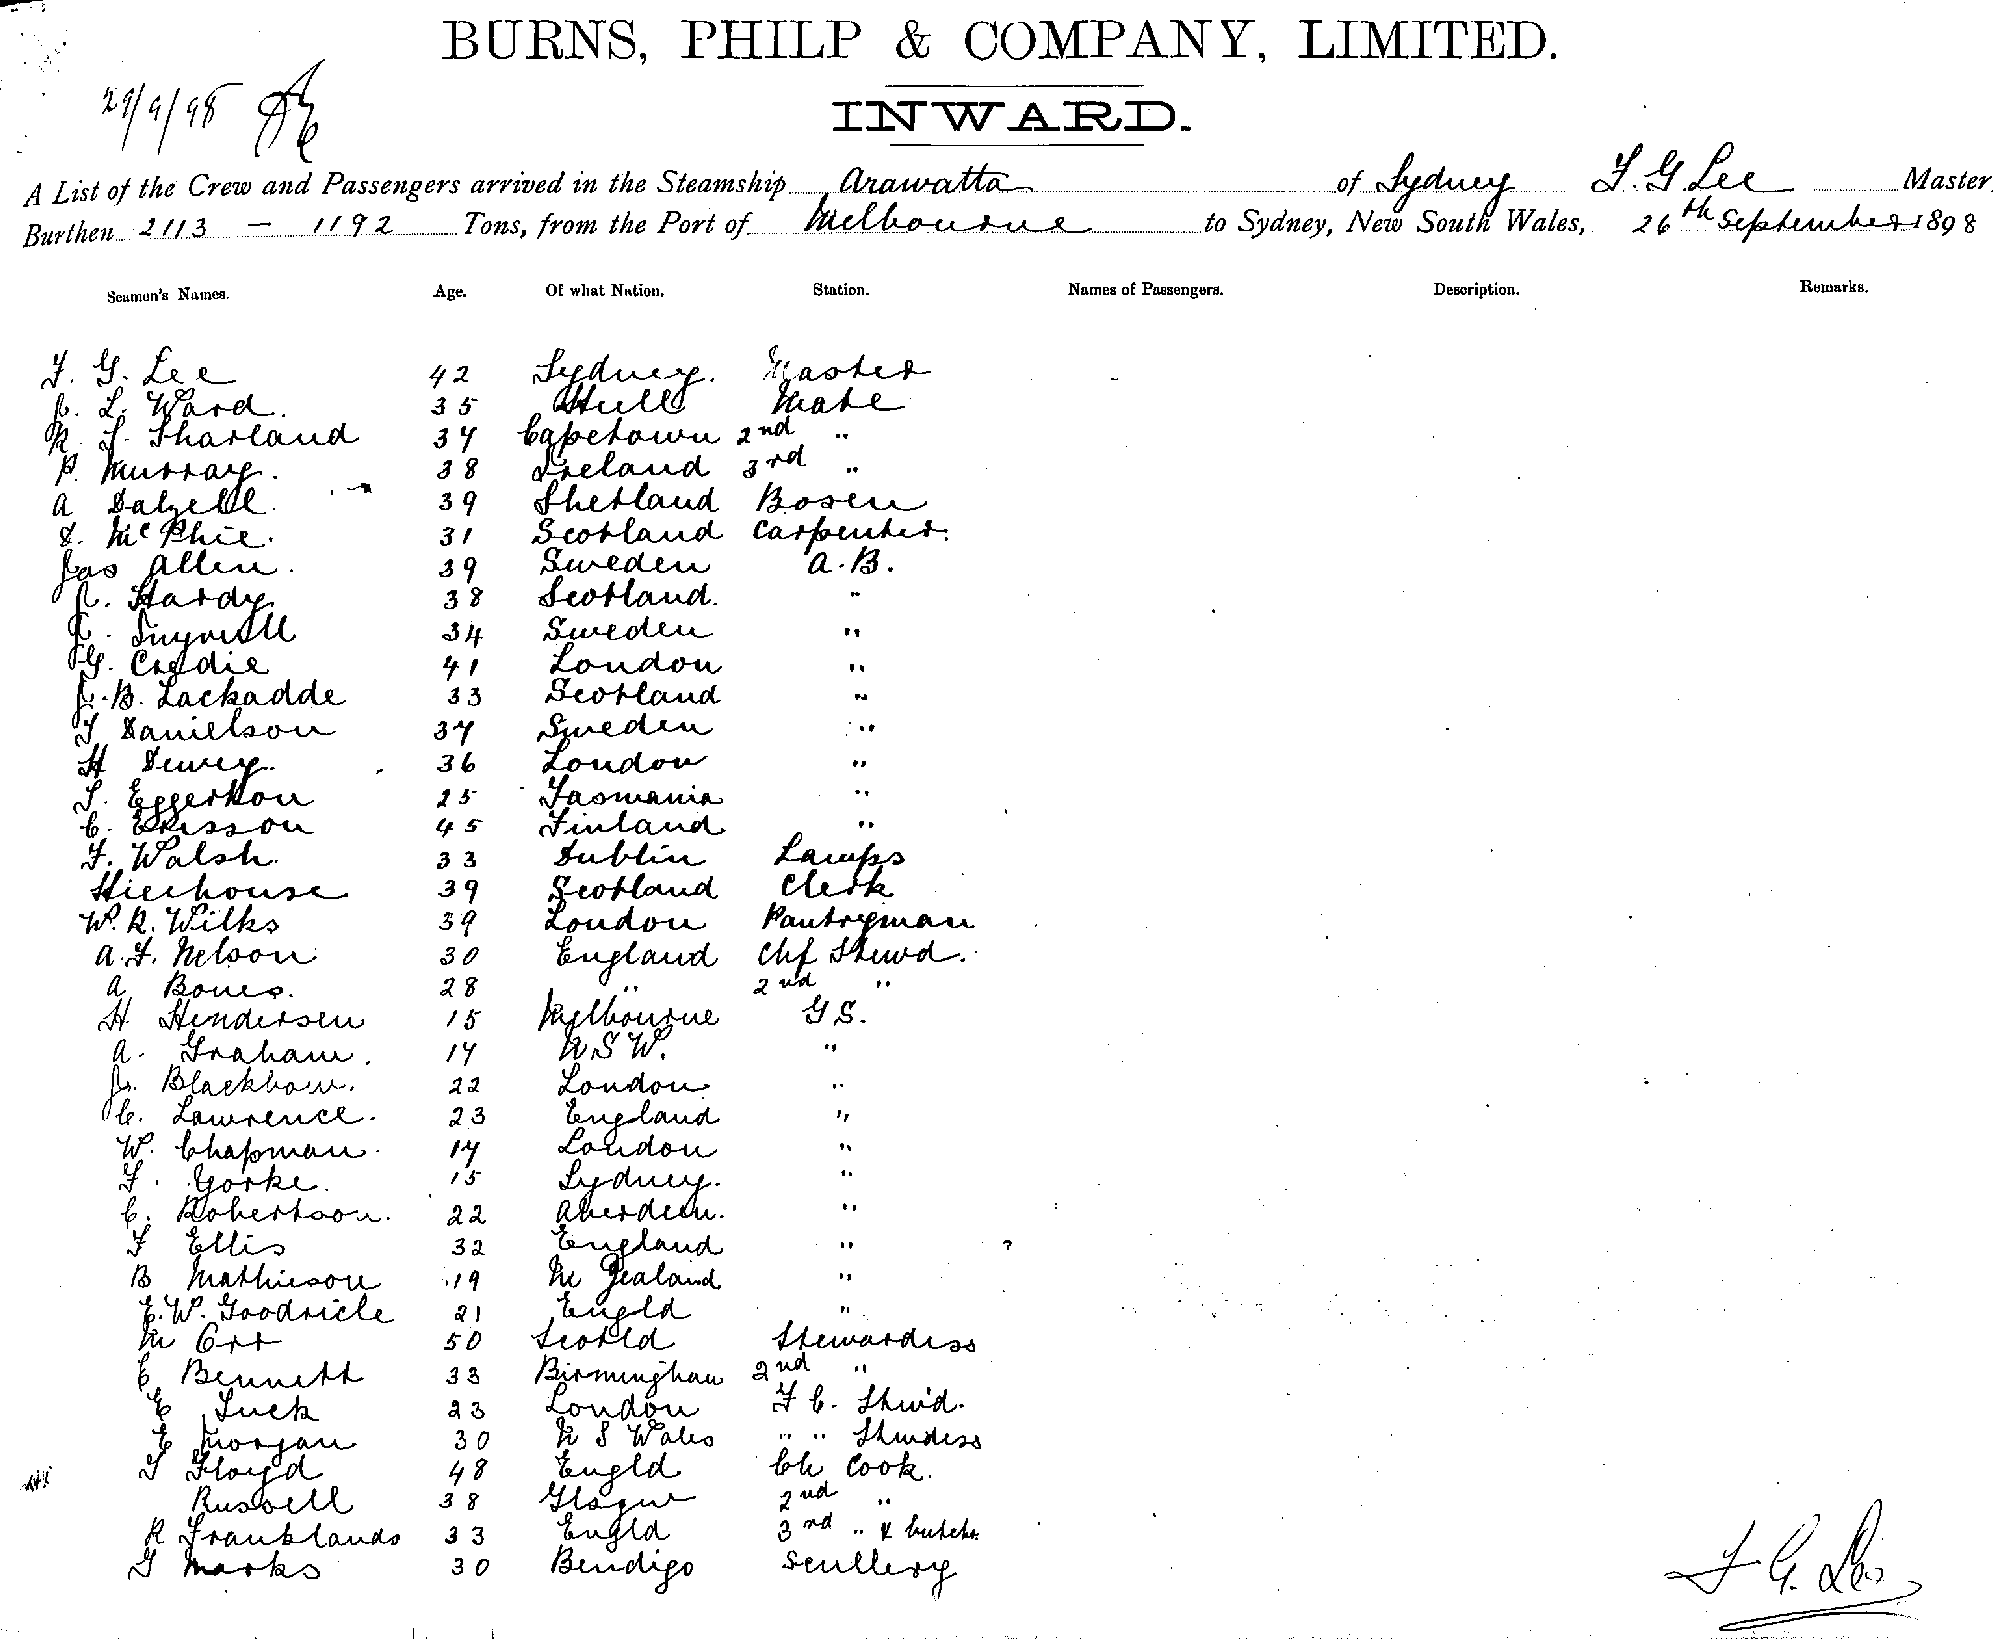 BURNS, PHILP & COMPANY, LIMITED.
29/9/98
INWARD.
A List of the Crew and Passengers arrived in the Steamship Arawatta of Sydney F. G. Lee Master
Burthen 2113 - 1192 Tons, from the Port of Melbourne to Sydney, New South Wales, 26th September 1898
Seamen's Names. Age. Of what Nation. Station. Names of Passengers. Description. Remarks.
F. G. Lee 42 Sydney. Master
J. L. Ward. 35 Hull Mate
R. S. Sharland 37 Capetown 2nd "
P. Murray. 38 Ireland 3rd "
A Dalzell. 39 Shetland Bosen
D. McPhie. 31 Scotland Carpenter.
Jas Allen. 39 Sweden A.B.
J. Hardy 38 Scotland. "
34 Sweden "
G. 41 London "
J. B. Lackadde 33 Scotland "
F Danielson 37 Sweden "
H Dewey. 36 London "
S. Eggerton 25 Tasmania "
C. Erisson 45 Finland "
F. Walsh. 33 Dublin Lamps
39 Scotland Clerk
W. R. Wilks 39 London Pantryman
A. F. Nelson 30 England Chf Stewd.
A Bones. 28 " 2nd "
H Hendersen 15 Melbourne G S.
A. Graham. 17 N S W. "
J. Blackbow. 22 London "
C. Lawrence. 23 England "
W. Chapman. 17 London "
F. Gorke. 15 Sydney. "
C. Robertson. 22 Aberdeen. "
F Ellis 32 England "
B Mathieson 19 N Zealand "
E. W. Goodricke 21 Engld "
M Orr 50 Scotld Stewardess
C Bennett 33 Birmingham 2nd "
E Tuck 23 London F C. Stewd.
E Morgan 30 N S Wales " " Stewdess
T Floyd 48 Engld Ch Cook.
Russell 38 Glasgow 2nd "
R Franklands 33 Engld 3rd " & butchr.
G Marks 30 Bendigo Scullery
F G. Lee